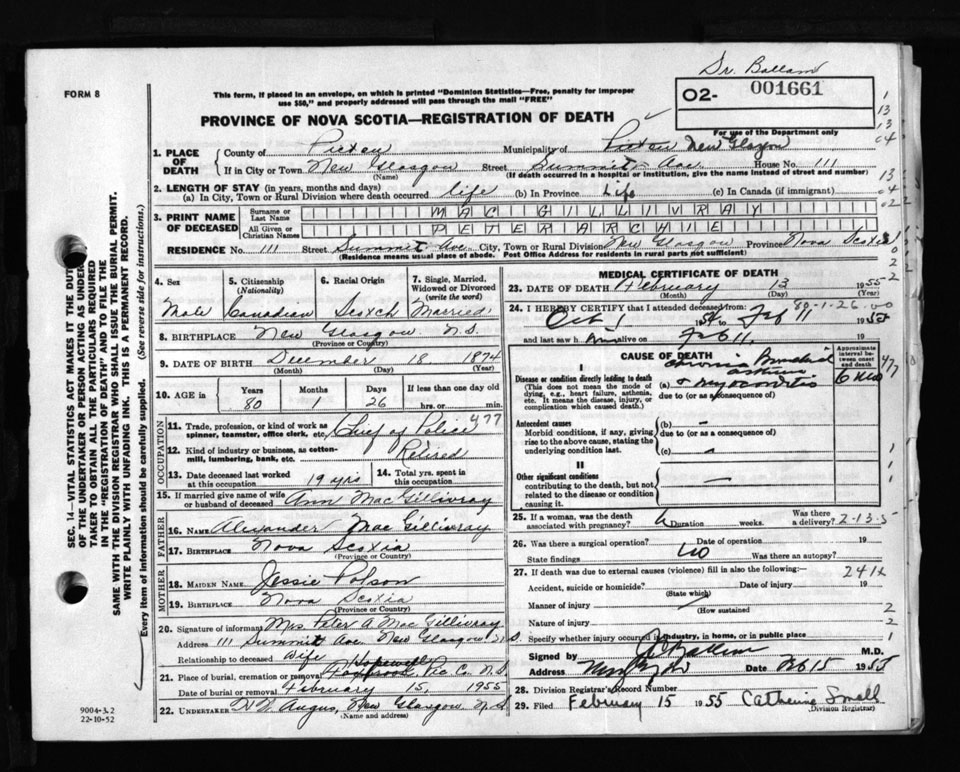 Dr. Ballam
FORM 8
This form, if placed in an envelope, on which is printed "Dominion Statistics—Free, penalty for improper
use $50," and properly addressed will pass through the mail "FREE"
02- 001661
PROVINCE OF NOVA SCOTIA—REGISTRATION OF DEATH
For use of the Department only
1. PLACE OF DEATH
County of Pictou Municipality of Pictou New Glasgow
If in City or Town New Glasgow Street Summit Ave. House No. 111
(Name) (If death occurred in a hospital or institution, give the name instead of street and number)
2. LENGTH OF STAY (in years, months and days)
(a) In City, Town or Rural Division where death occurred life (b) In Province Life (c) In Canada (if immigrant)
3. PRINT NAME OF DECEASED
Surname or Last Name MAC GILLIVRAY
All Given or Christian Names PETER ARCHIE
RESIDENCE No. 111 Street Summit Ave City, Town or Rural Division New Glasgow Province Nova Scotia
(Residence means usual place of abode. Post Office Address for residents in rural parts not sufficient)
4. Sex 5. Citizenship (Nationality) 6. Racial Origin 7. Single, Married, Widowed or Divorced (write the word)
Male Canadian Scotch Married
8. BIRTHPLACE New Glasgow N.S.
(Province or Country)
9. DATE OF BIRTH December 18 1874
(Month) (Day) (Year)
10. AGE in Years Months Days If less than one day old
80 1 26 hrs. or min.
OCCUPATION
11. Trade, profession, or kind of work as spinner, teamster, office clerk, etc. Chief of Police 477
12. Kind of industry or business, as cotton-mill, lumbering, bank, etc. Retired
13. Date deceased last worked at this occupation 19 yrs
14. Total yrs. spent in this occupation
15. If married give name of wife or husband of deceased Ann MacGillivray
FATHER
16. NAME Alexander MacGillivray
17. BIRTHPLACE Nova Scotia
(Province or Country)
MOTHER
18. MAIDEN NAME Jessie Polson
19. BIRTHPLACE Nova Scotia
(Province or Country)
20. Signature of informant Mrs Peter A MacGillivray
Address 111 Summit Ave New Glasgow N.S.
Relationship to deceased Wife
21. Place of burial, cremation or removal Hopewell Pic Co. N.S.
Date of burial or removal February 15, 1955
22. UNDERTAKER Angus, New Glasgow N.S
(Name and address)
MEDICAL CERTIFICATE OF DEATH
23. DATE OF DEATH February 13 1955
(Month) (Day) (Year)
80-1-26
24. I HEREBY CERTIFY that I attended deceased from:
Oct 1 1954 to Feb 11 1955
and last saw him alive on Feb 11 19
CAUSE OF DEATH
Approximate interval between onset and death
I
Disease or condition directly leading to death
(This does not mean the mode of dying, e.g., heart failure, asthenia, etc. It means the disease, injury, or complication which caused death.)
(a) Chronic Bronchial asthma & myocarditis 6 mos
due to (or as a consequence of)
Antecedent causes
Morbid conditions, if any, giving rise to the above cause, stating the underlying condition last.
(b) —
due to (or as a consequence of)
(c)
II
Other significant conditions
contributing to the death, but not related to the disease or condition causing it.
25. If a woman, was the death associated with pregnancy? Duration weeks. Was there a delivery? 2-13-5
26. Was there a surgical operation? No Date of operation 19
State findings Was there an autopsy?
27. If death was due to external causes (violence) fill in also the following:— 2412
Accident, suicide or homicide? Date of injury 19
(State which)
Manner of injury
(How sustained
Nature of injury
Specify whether injury occurred in industry, in home, or in public place
Signed by Ballam M.D.
Address New Glasgow Date Feb 15 1955
28. Division Registrar's Record Number
29. Filed February 15 1955 Catherine Small
(Division Registrar)
SEC. 14—VITAL STATISTICS ACT MAKES IT THE DUTY
OF THE UNDERTAKER OR PERSON ACTING AS UNDER-
TAKER TO OBTAIN ALL THE PARTICULARS REQUIRED
IN THE "REGISTRATION OF DEATH" AND TO FILE THE
SAME WITH THE DIVISION REGISTRAR WHO SHALL ISSUE THE BURIAL PERMIT.
WRITE PLAINLY WITH UNFADING INK. THIS IS A PERMANENT RECORD.
Every item of information should be carefully supplied. (See reverse side for instructions.)
9004-3.2
22-10-52